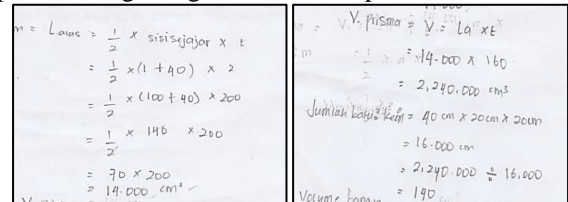 m = Lalas = 1/2 x sisi sejajar x t
= 1/2 x (1 + 40) x 2
= 1/2 x (100 + 40) x 200
= 1/2 x 140 x 200
= 70 x 200
= 14.000 cm²
V. prisma = V = La x t
= 14.000 x 160
= 2,240.000 cm³
Jumlah batu² kecil = 40 cm x 20 cm x 20 cm
= 16.000 cm
= 2,240.000 ÷ 16,000
= 140
Volume